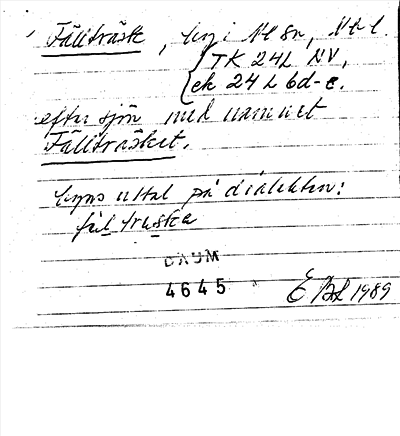 Fällträsk, by i Nl sn, Nb l.
TK 24L NV,
ek 24 L 6d-e.
efter sjön med namnet
Fällträsket.
byns uttal på dialekten:
fäl truska
DAUM
4645
EBL 1989